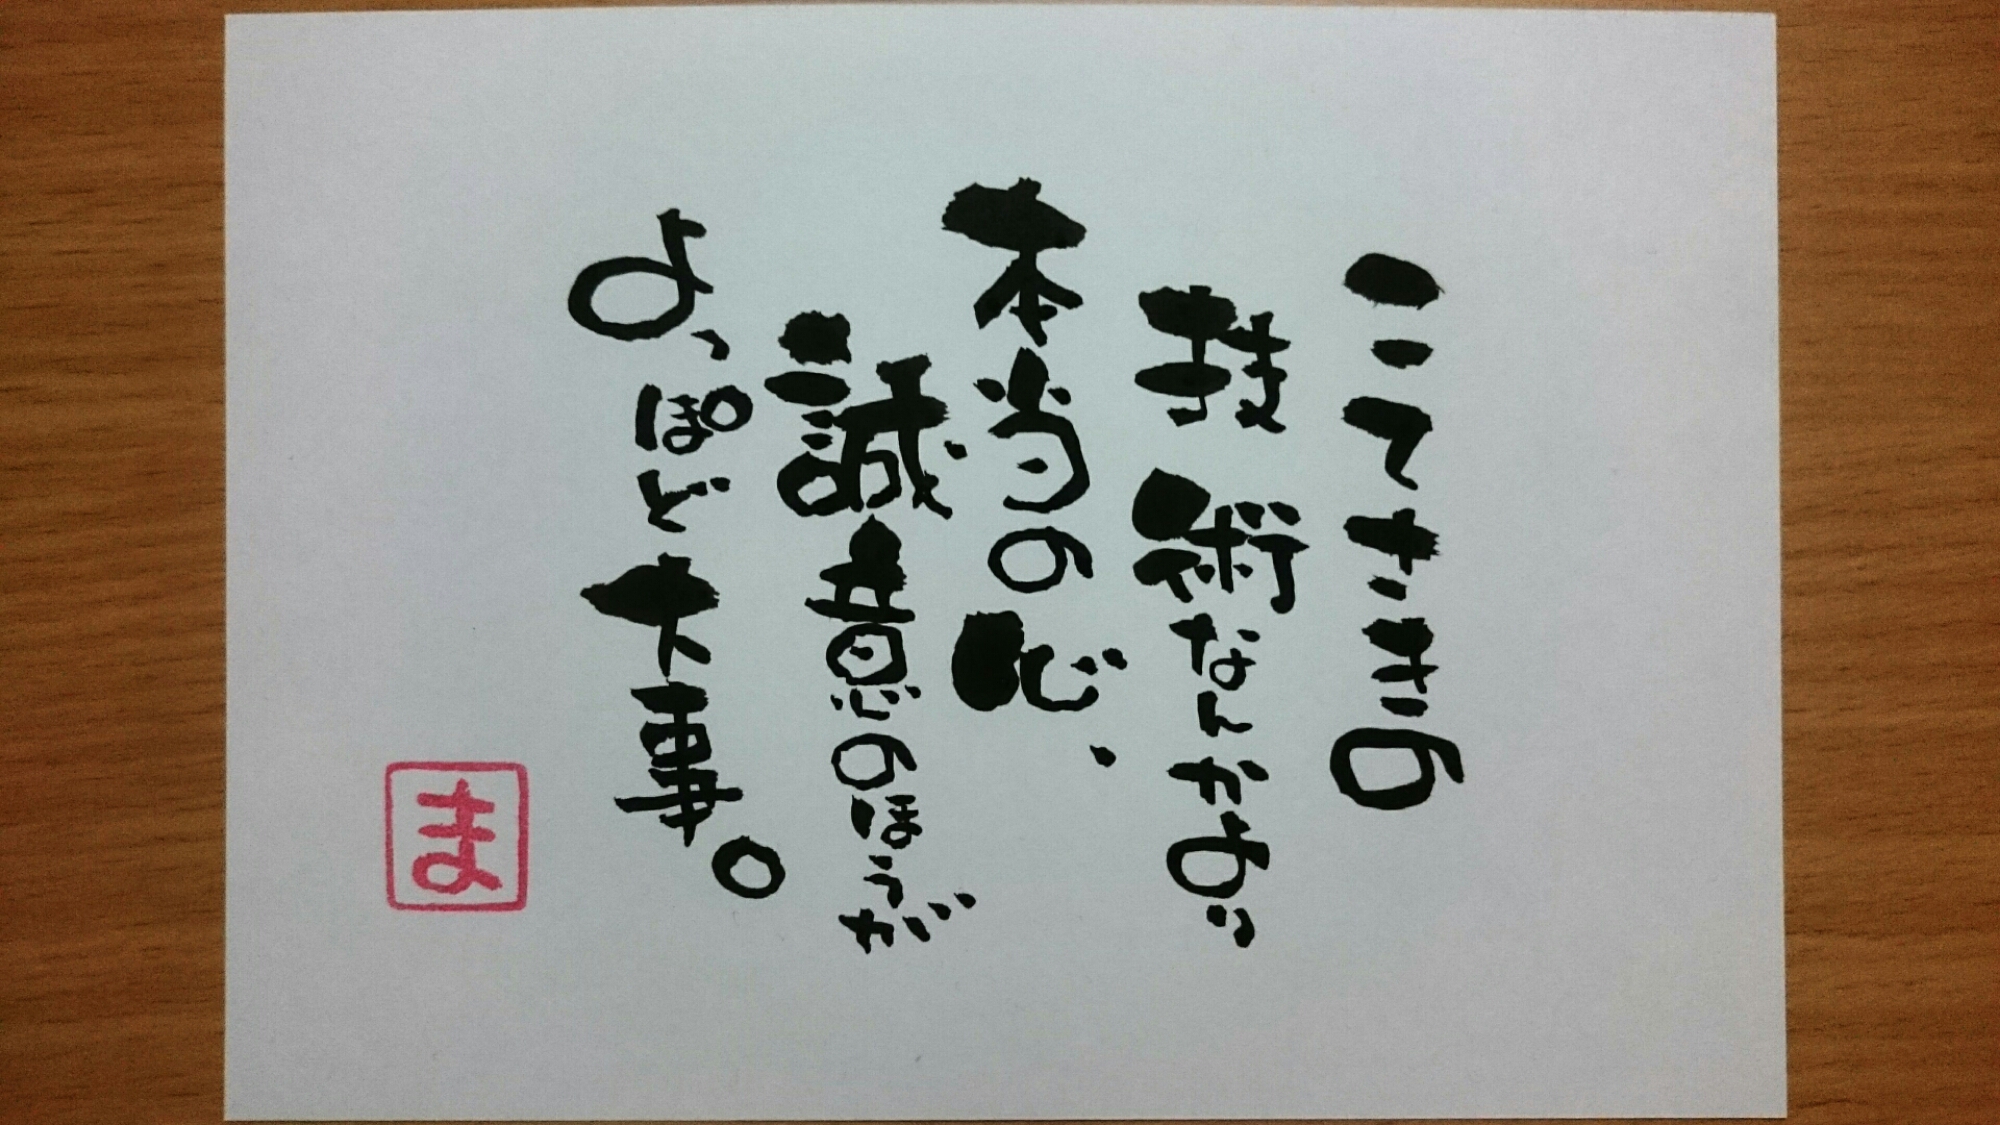 こてさきの
技術なんかより
本当の心、
誠意のほうが
よっぽど大事。
ま